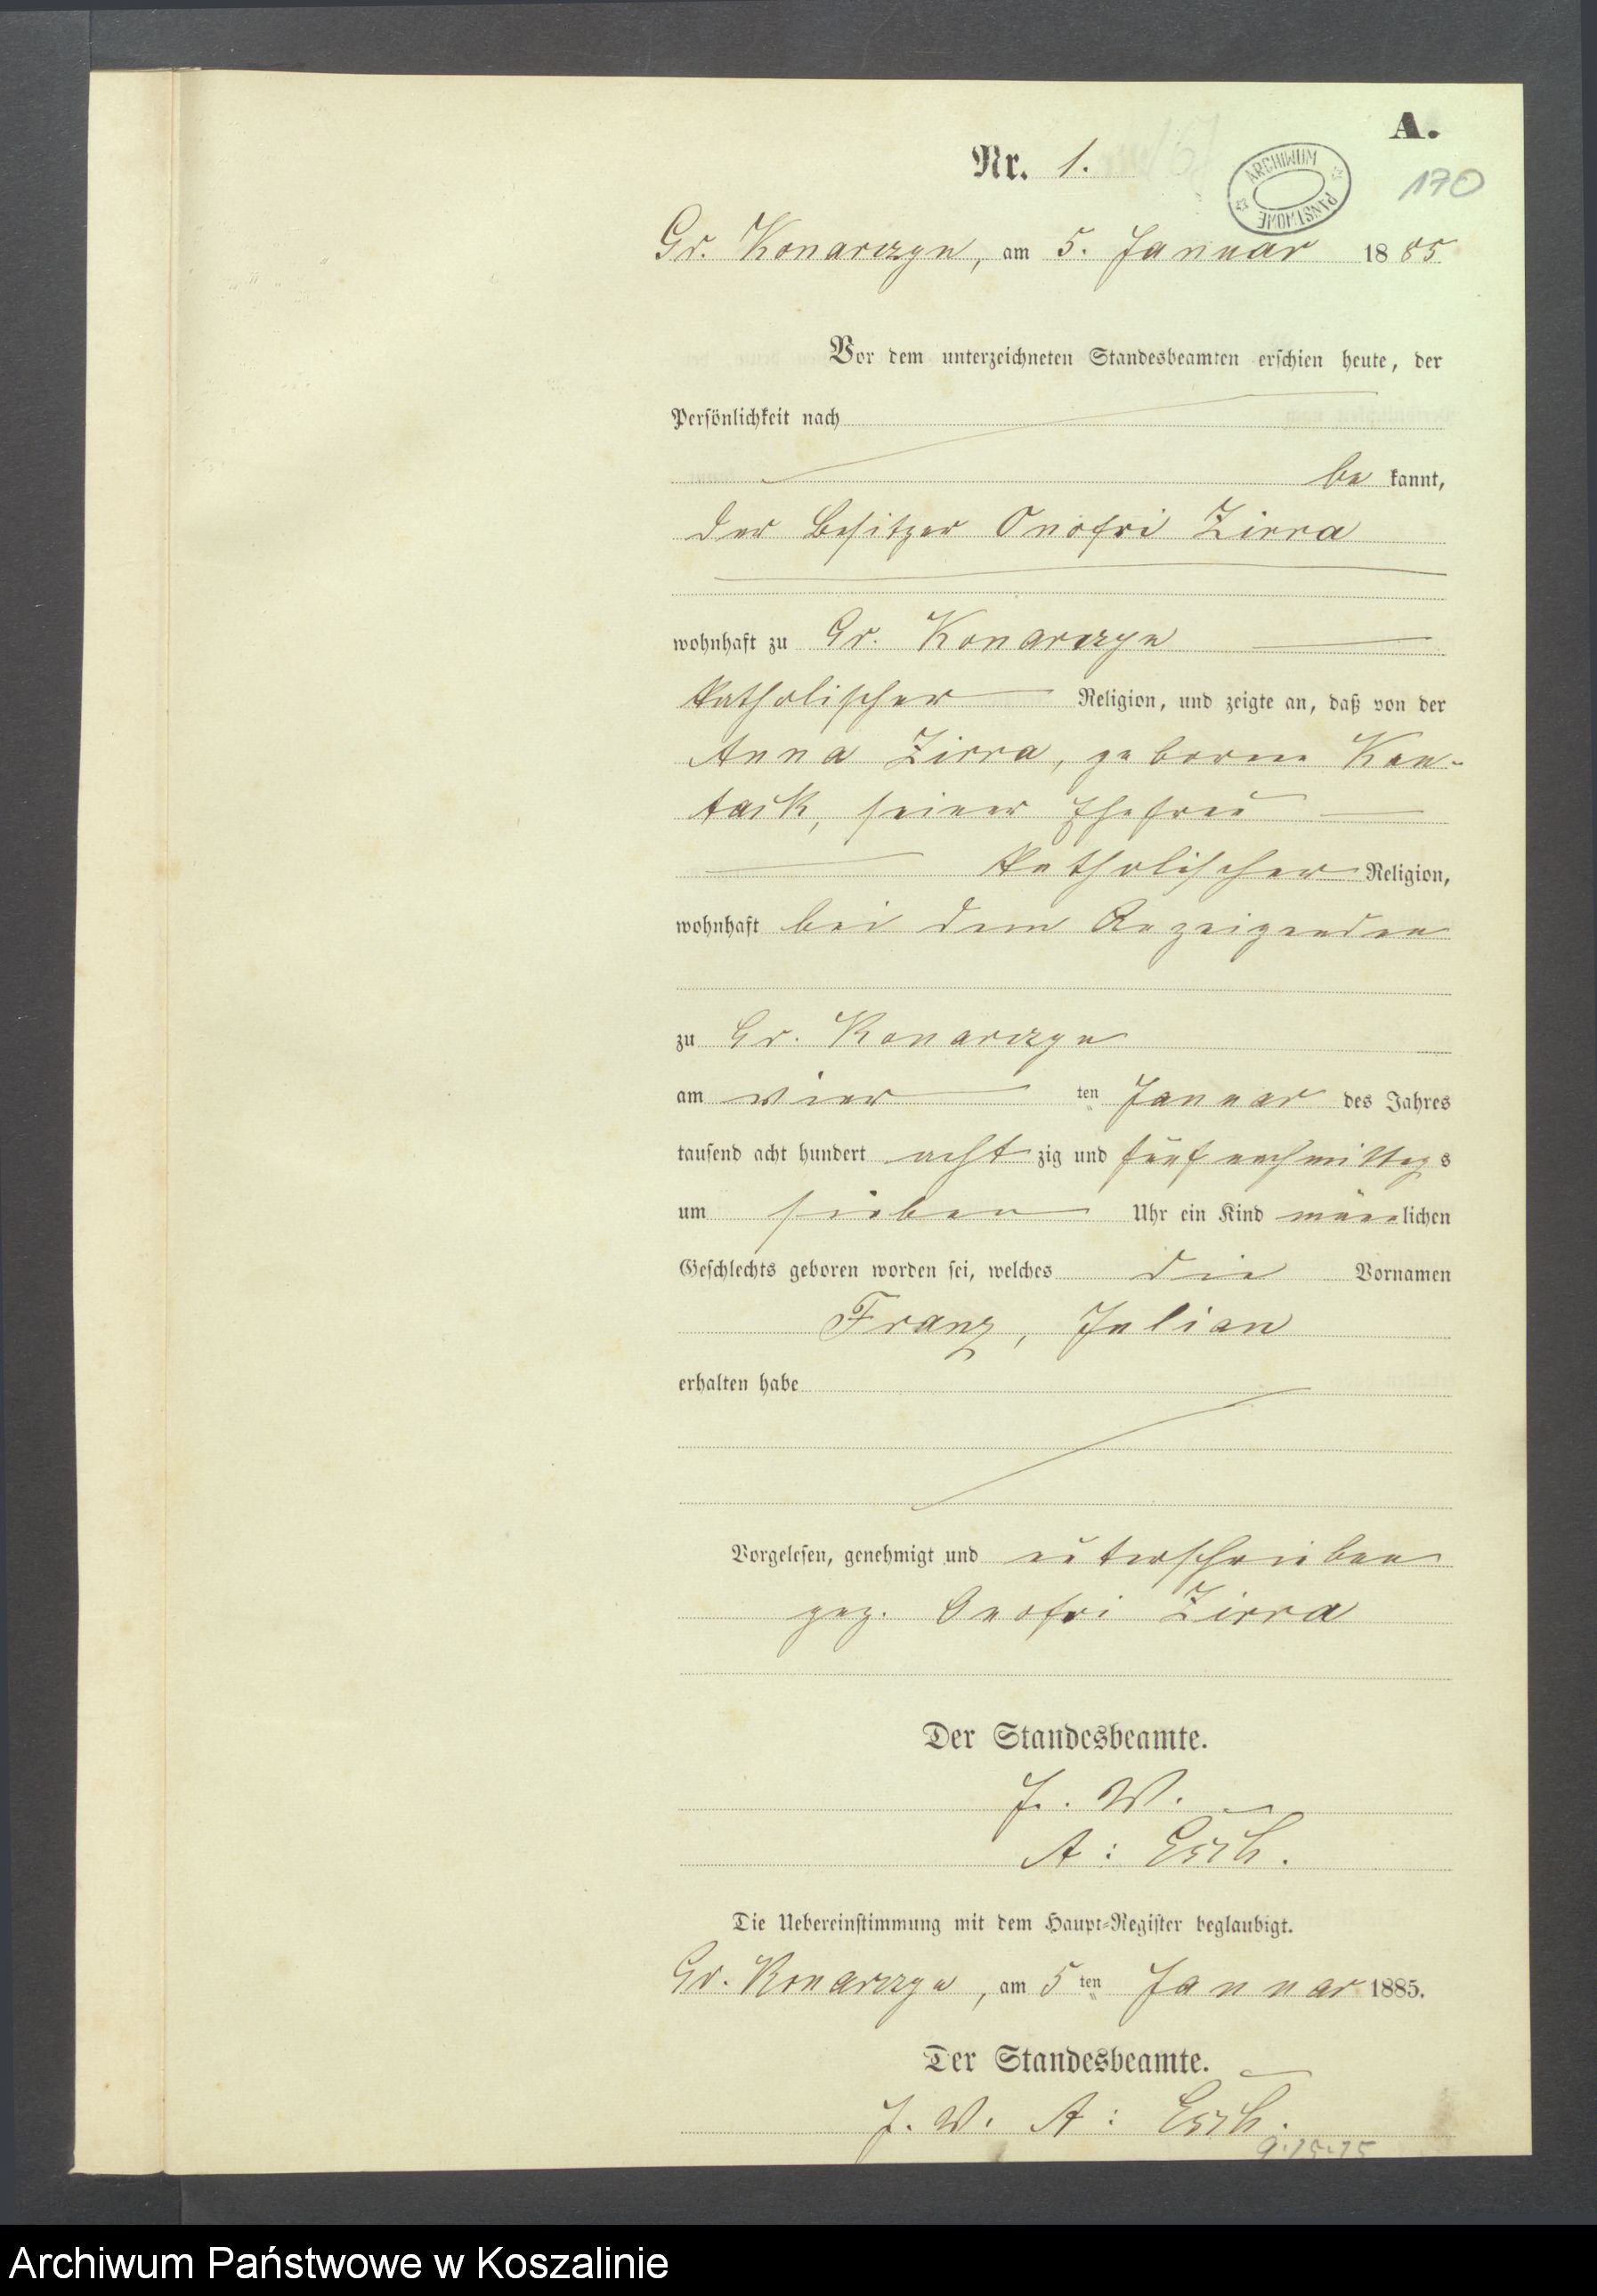 A.
Nr. 1.
ARCHIWUM PAŃSTWOWE
170
Gr. Konarczyn, am 5. Januar 1885
Vor dem unterzeichneten Standesbeamten erschien heute, der
Persönlichkeit nach
be kannt,
der Besitzer Onofri Zirra
wohnhaft zu Gr. Konarczyn
katholischer Religion, und zeigte an, daß von der
Anna Zirra, geborne Kan-
tack, seiner Ehefrau
katholischer Religion,
wohnhaft bei dem Anzeigenden
zu Gr. Konarczyn
am vier ten Januar des Jahres
tausend acht hundert acht zig und fünf nachmittags
um sieben Uhr ein Kind männlichen
Geschlechts geboren worden sei, welches die Vornamen
Franz, Julian
erhalten habe
Vorgelesen, genehmigt und unterschrieben
gez. Onofri Zirra
Der Standesbeamte.
J. V.
A:
Die Uebereinstimmung mit dem Haupt-Register beglaubigt.
Gr. Konarczyn, am 5 ten Januar 1885.
Der Standesbeamte.
J. V. A:
Archiwum Państwowe w Koszalinie